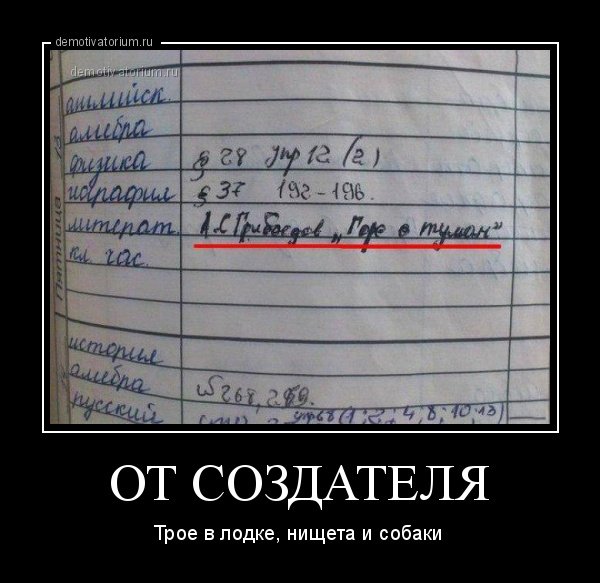 demotivatorium.ru
demotivatorium.ru
английск.
алгебра
физика § 28 упр 12 (2)
география § 37 192-196.
литерат. А.С Грибоедов „Горе о туман"
кл. час.
Пятница
история
алгебра № 268, 269.
русский упр 68 (1; 2; 4; 8; 10; 13)
ОТ СОЗДАТЕЛЯ
Трое в лодке, нищета и собаки